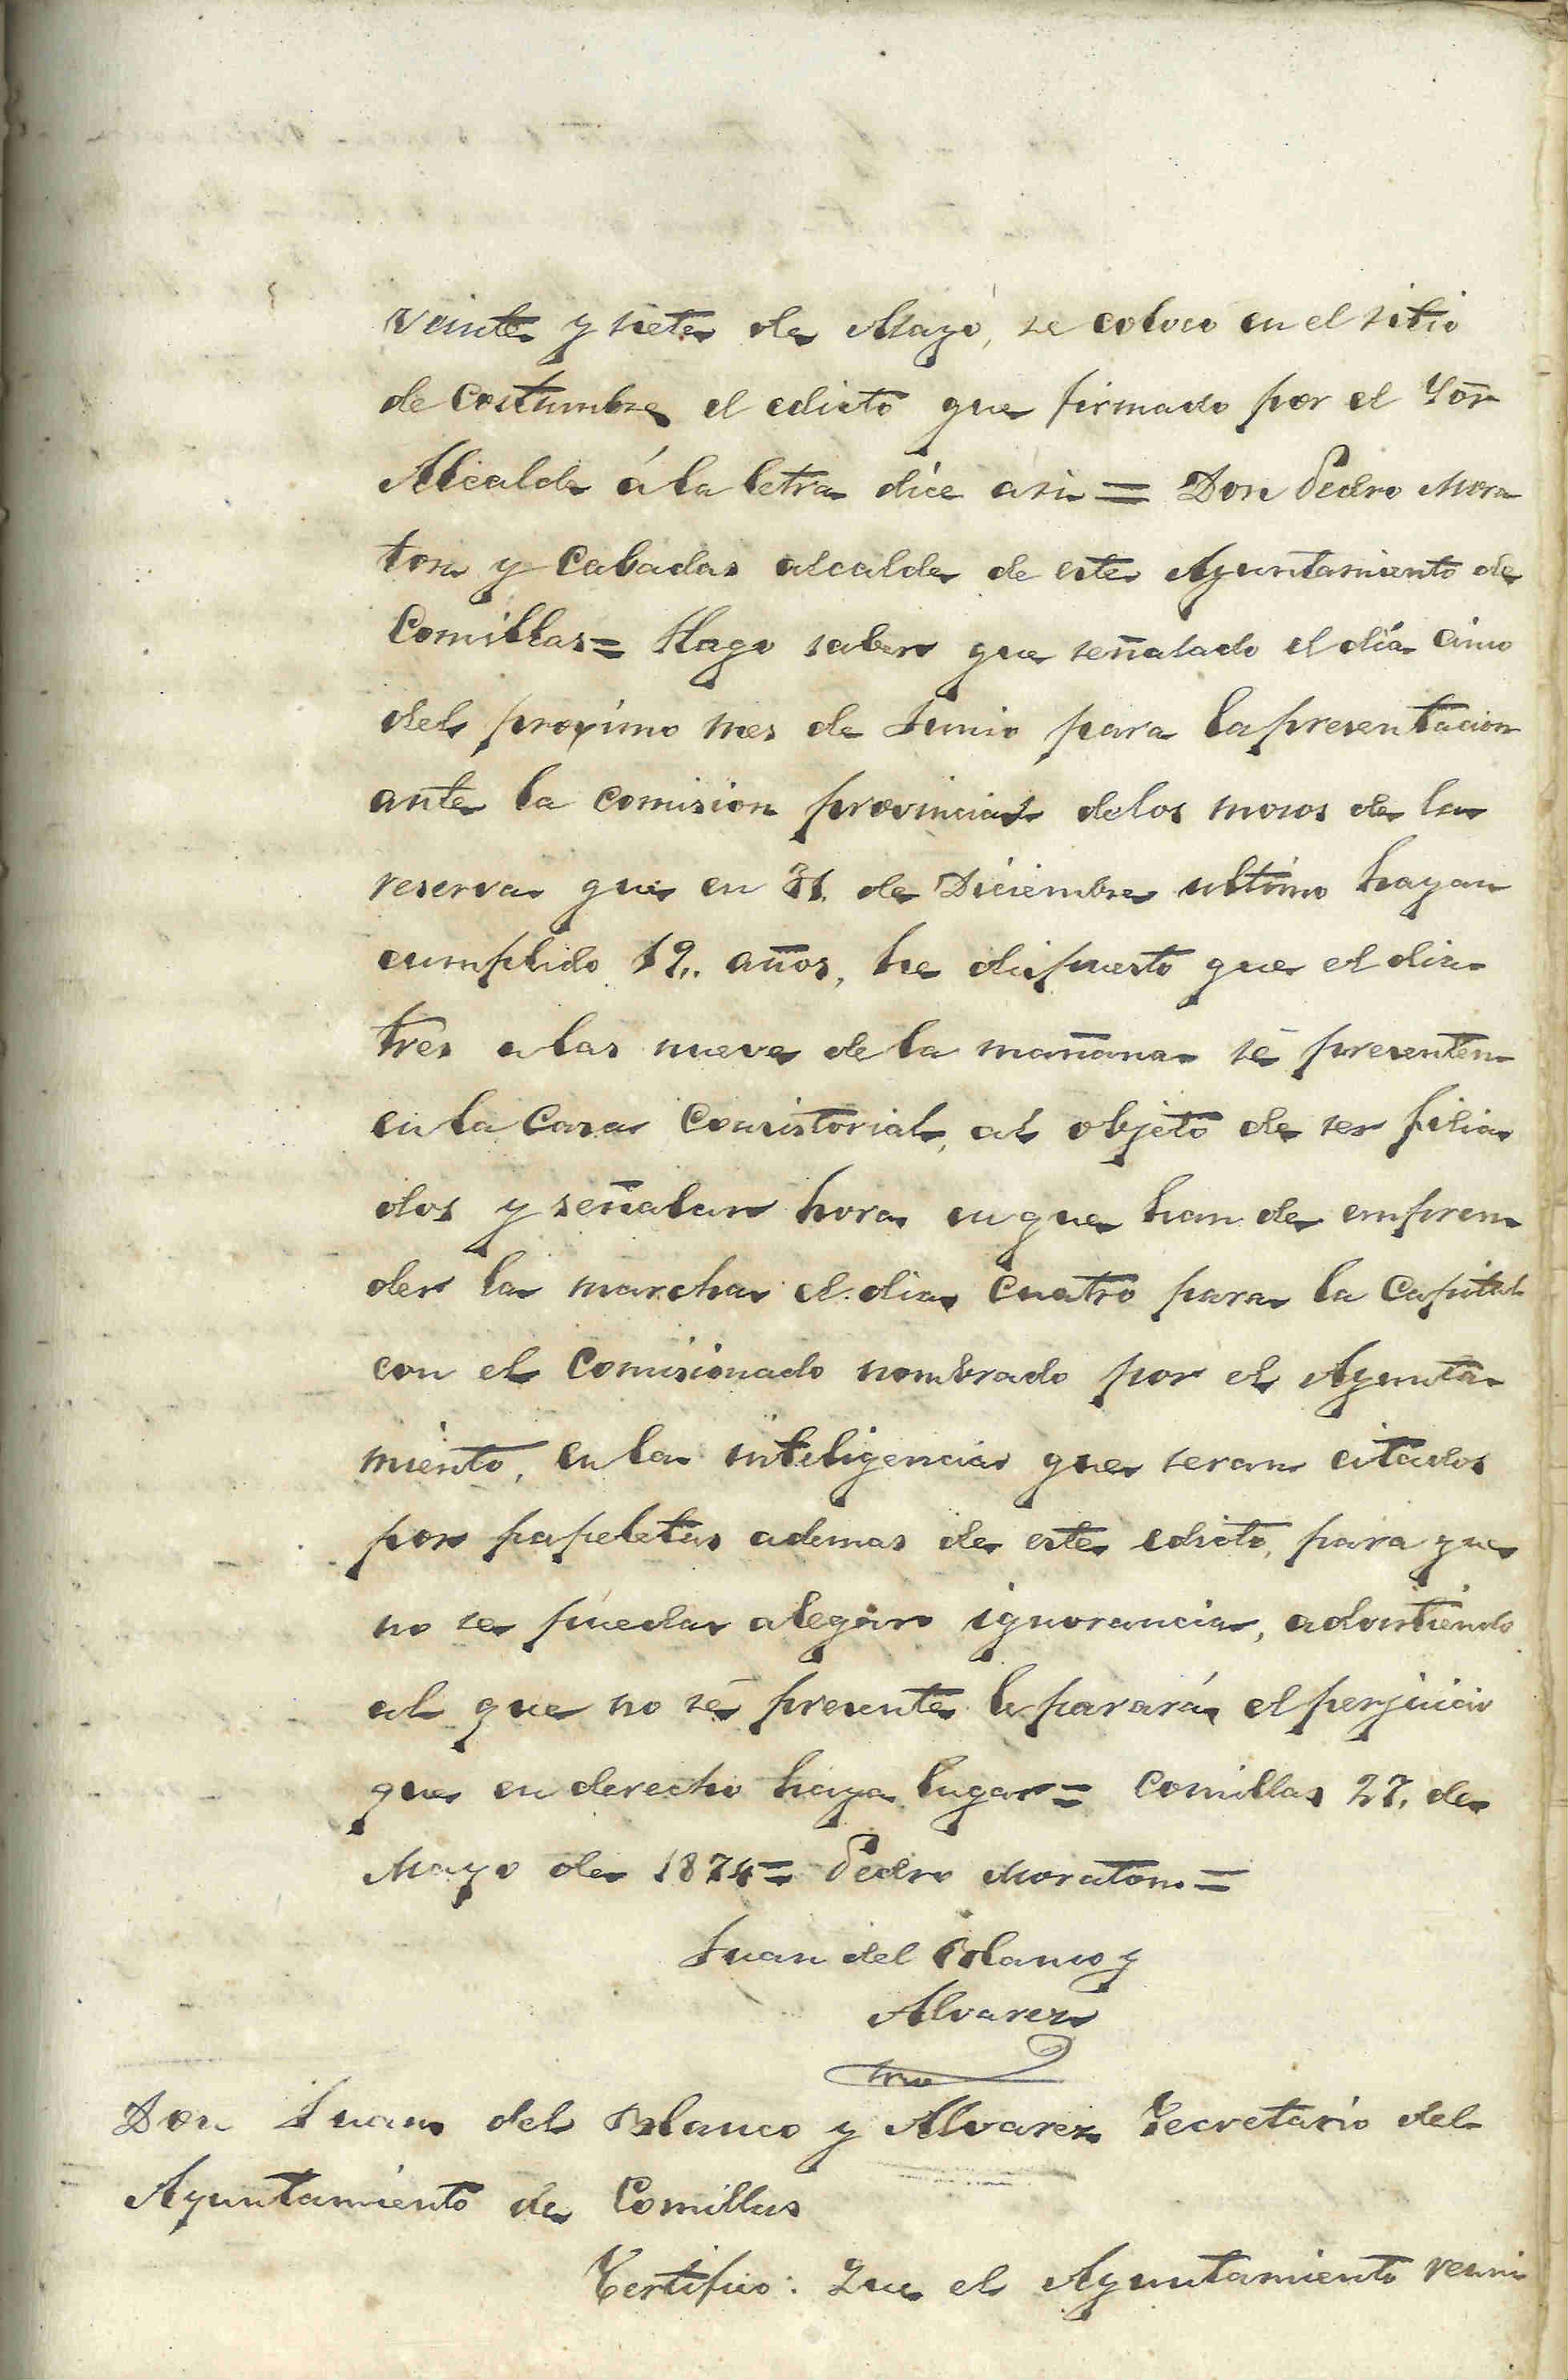 veinte y siete de Mayo, se coloco en el sitio
de Costumbre el edicto que firmado por el Sor
Alcalde á la letra dice asi = Don Pedro Mora
ton y Cabadas alcalde de este Ayuntamiento de
Comillas = Hago saber que señalado el día cinco
del proximo mes de Junio para la presentacion
ante la comision provincial de los mozos de la
reserva que en 31. de Diciembre ultimo hayan
cumplido 19.. años, he dispuesto que el dia
tres a las nueve de la mañana se presenten
en la Casa Consistorial, al objeto de ser filia
dos y señalar hora en que han de empren
der la marcha el dia Cuatro para la Capital
con el Comisionado nombrado por el Ayunta
miento, en la inteligencia que seran citados
por papeletas ademas de este edicto, para que
no se pueda alegar ignorancia, advirtiendo
al que no se presente le parará el perjuicio
que en derecho haya lugar = Comillas 27. de
Mayo de 1874 = Pedro Moraton =
Juan del Blanco y
Alvarez
Srio
Don Juan del Blanco y Alvarez Secretario del
Ayuntamiento de Comillas
Certifico: Que el Ayuntamiento reuni